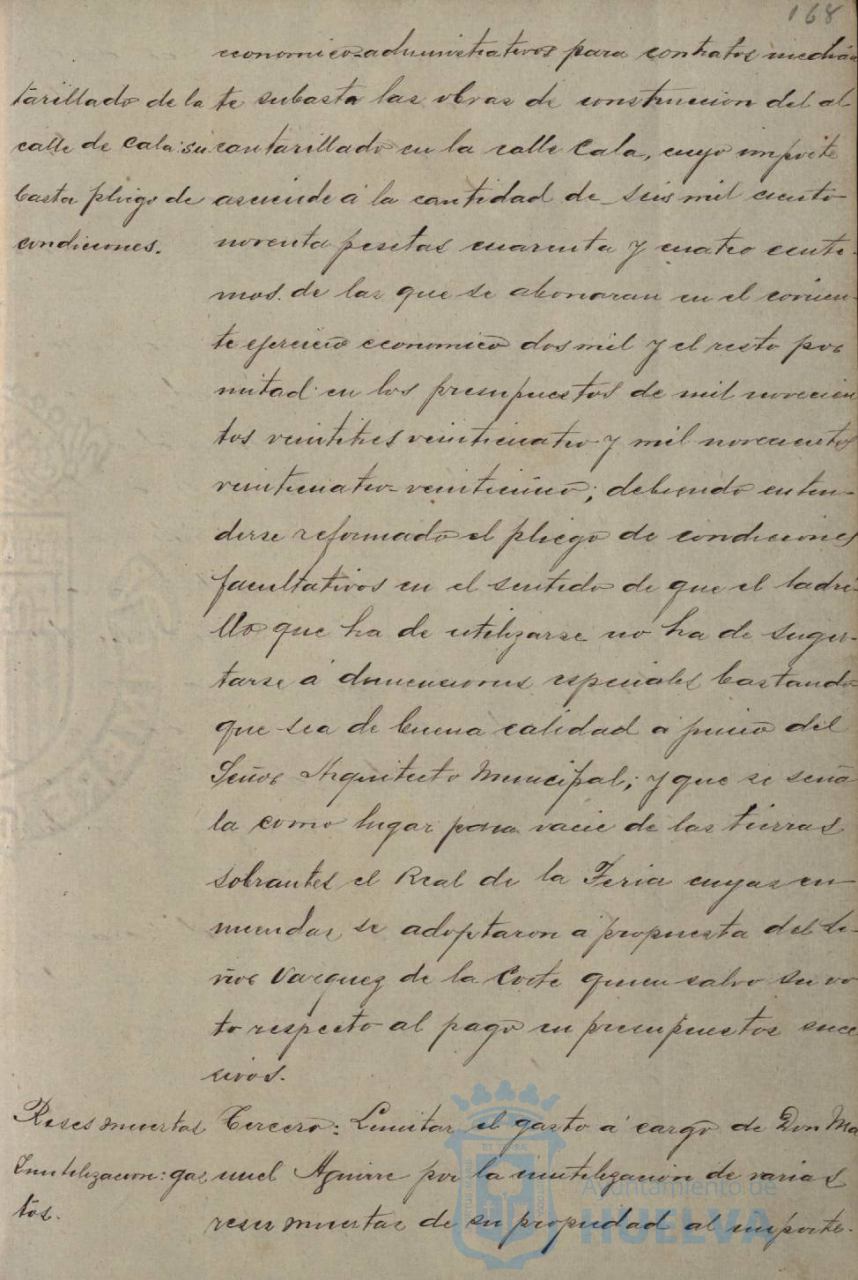 168
economico-administrativos para contratar median
tarillado de la
calle de Cala: su
basta pliego de
condiciones.
te subasta las obras de construccion del al
cantarillado en la calle Cala, cuyo importe
asciende á la cantidad de seis mil ciento
noventa pesetas cuarenta y cuatro centi-
mos. de las que se abonaran en el corrien-
te ejercicio economico dos mil y el resto por
mitad en los presupuestos de mil novecien
tos veintitres veinticuatro y mil novecientos
veinticuatro-veinticinco; debiendo enten-
derse reformado el pliego de condiciones
facultativos en el sentido de que el ladri-
llo que ha de utilizarse no ha de suger-
tarse á dimenciones especiales bastando
que sea de buena calidad a juicio del
Señor Arquitecto Municipal; y que se seña
la como lugar para vacie de las tierras
sobrantes el Real de la Feria cuyas en
miendas se adoptaron á propuesta del Se-
ñor Vazquez de la Corte quien salvo su vo
to respecto al pago en presupuestos suce
civos.
Reses muertas
Inutilizacion: gas
tos.
Tercero: Limitar el gasto á cargo de Don Ma
nuel Aguirre por la inutilización de varias
reses muertas de su propiedad al importe
Ayuntamiento de
HUELVA